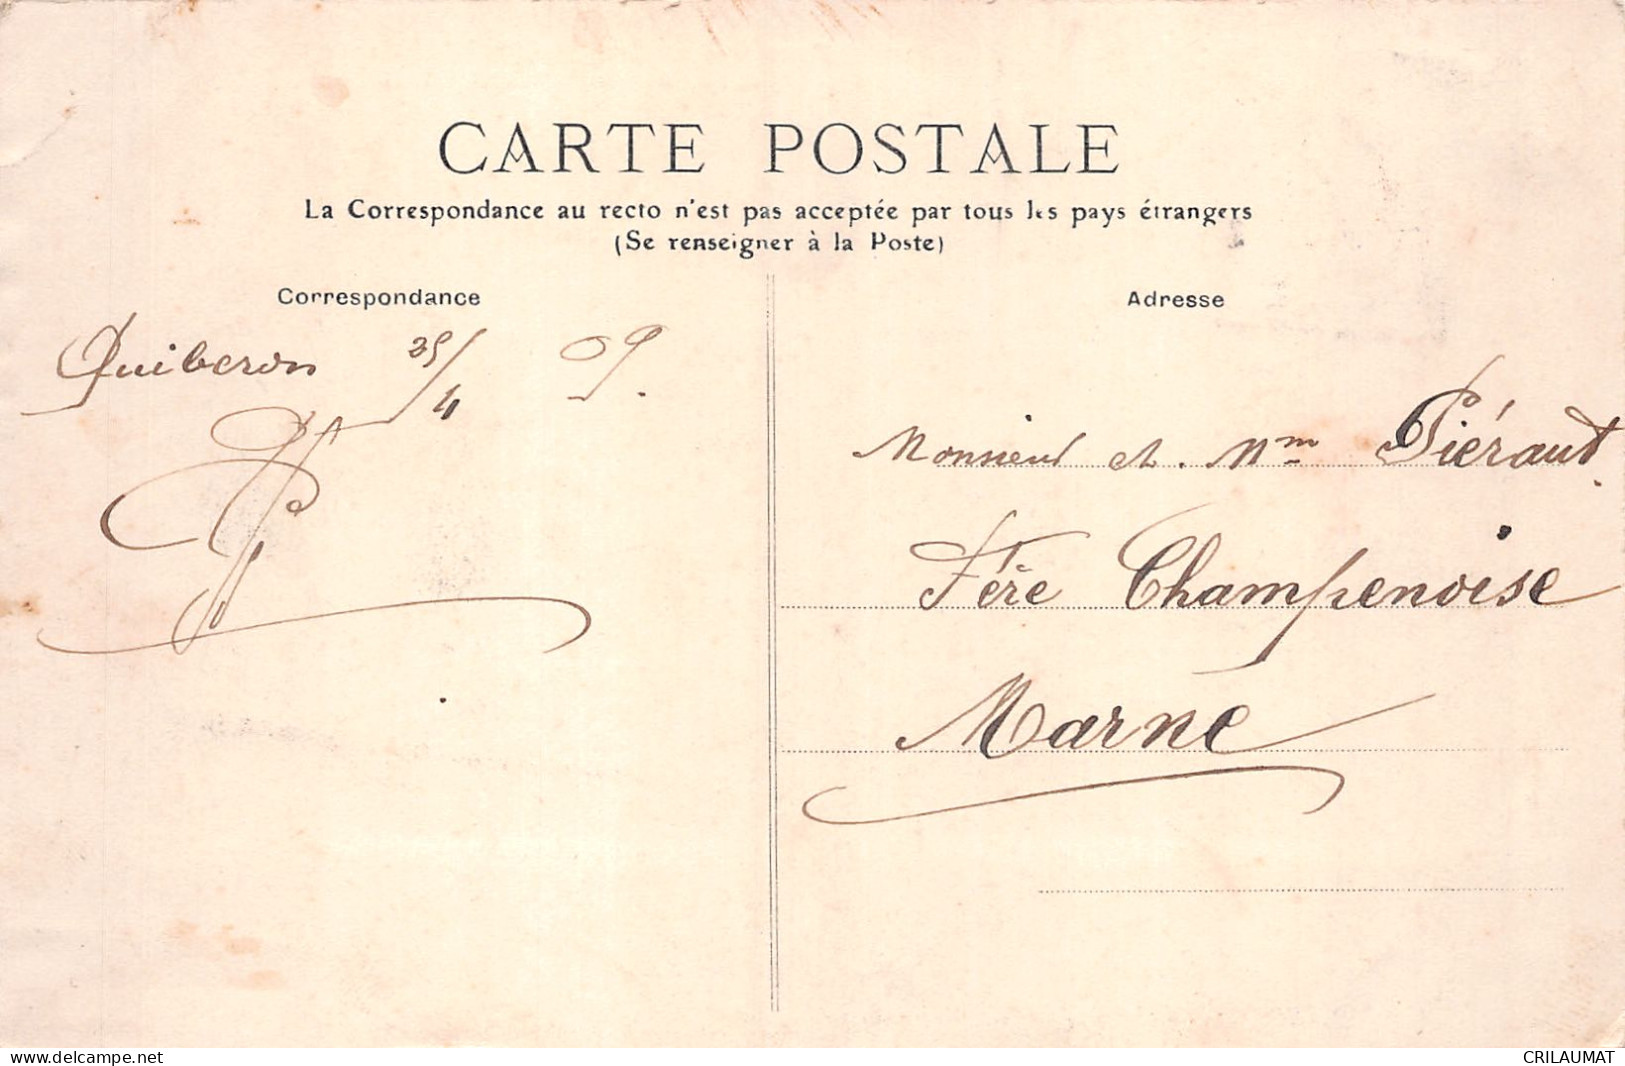 CARTE POSTALE
La Correspondance au recto n'est pas acceptée par tous les pays étrangers
(Se renseigner à la Poste)
Correspondance
Adresse
Quiberon 25/4 09.
Monsieur et Mme Piéraut
Fère Champenoise
Marne
www.delcampe.net
CRILAUMAT